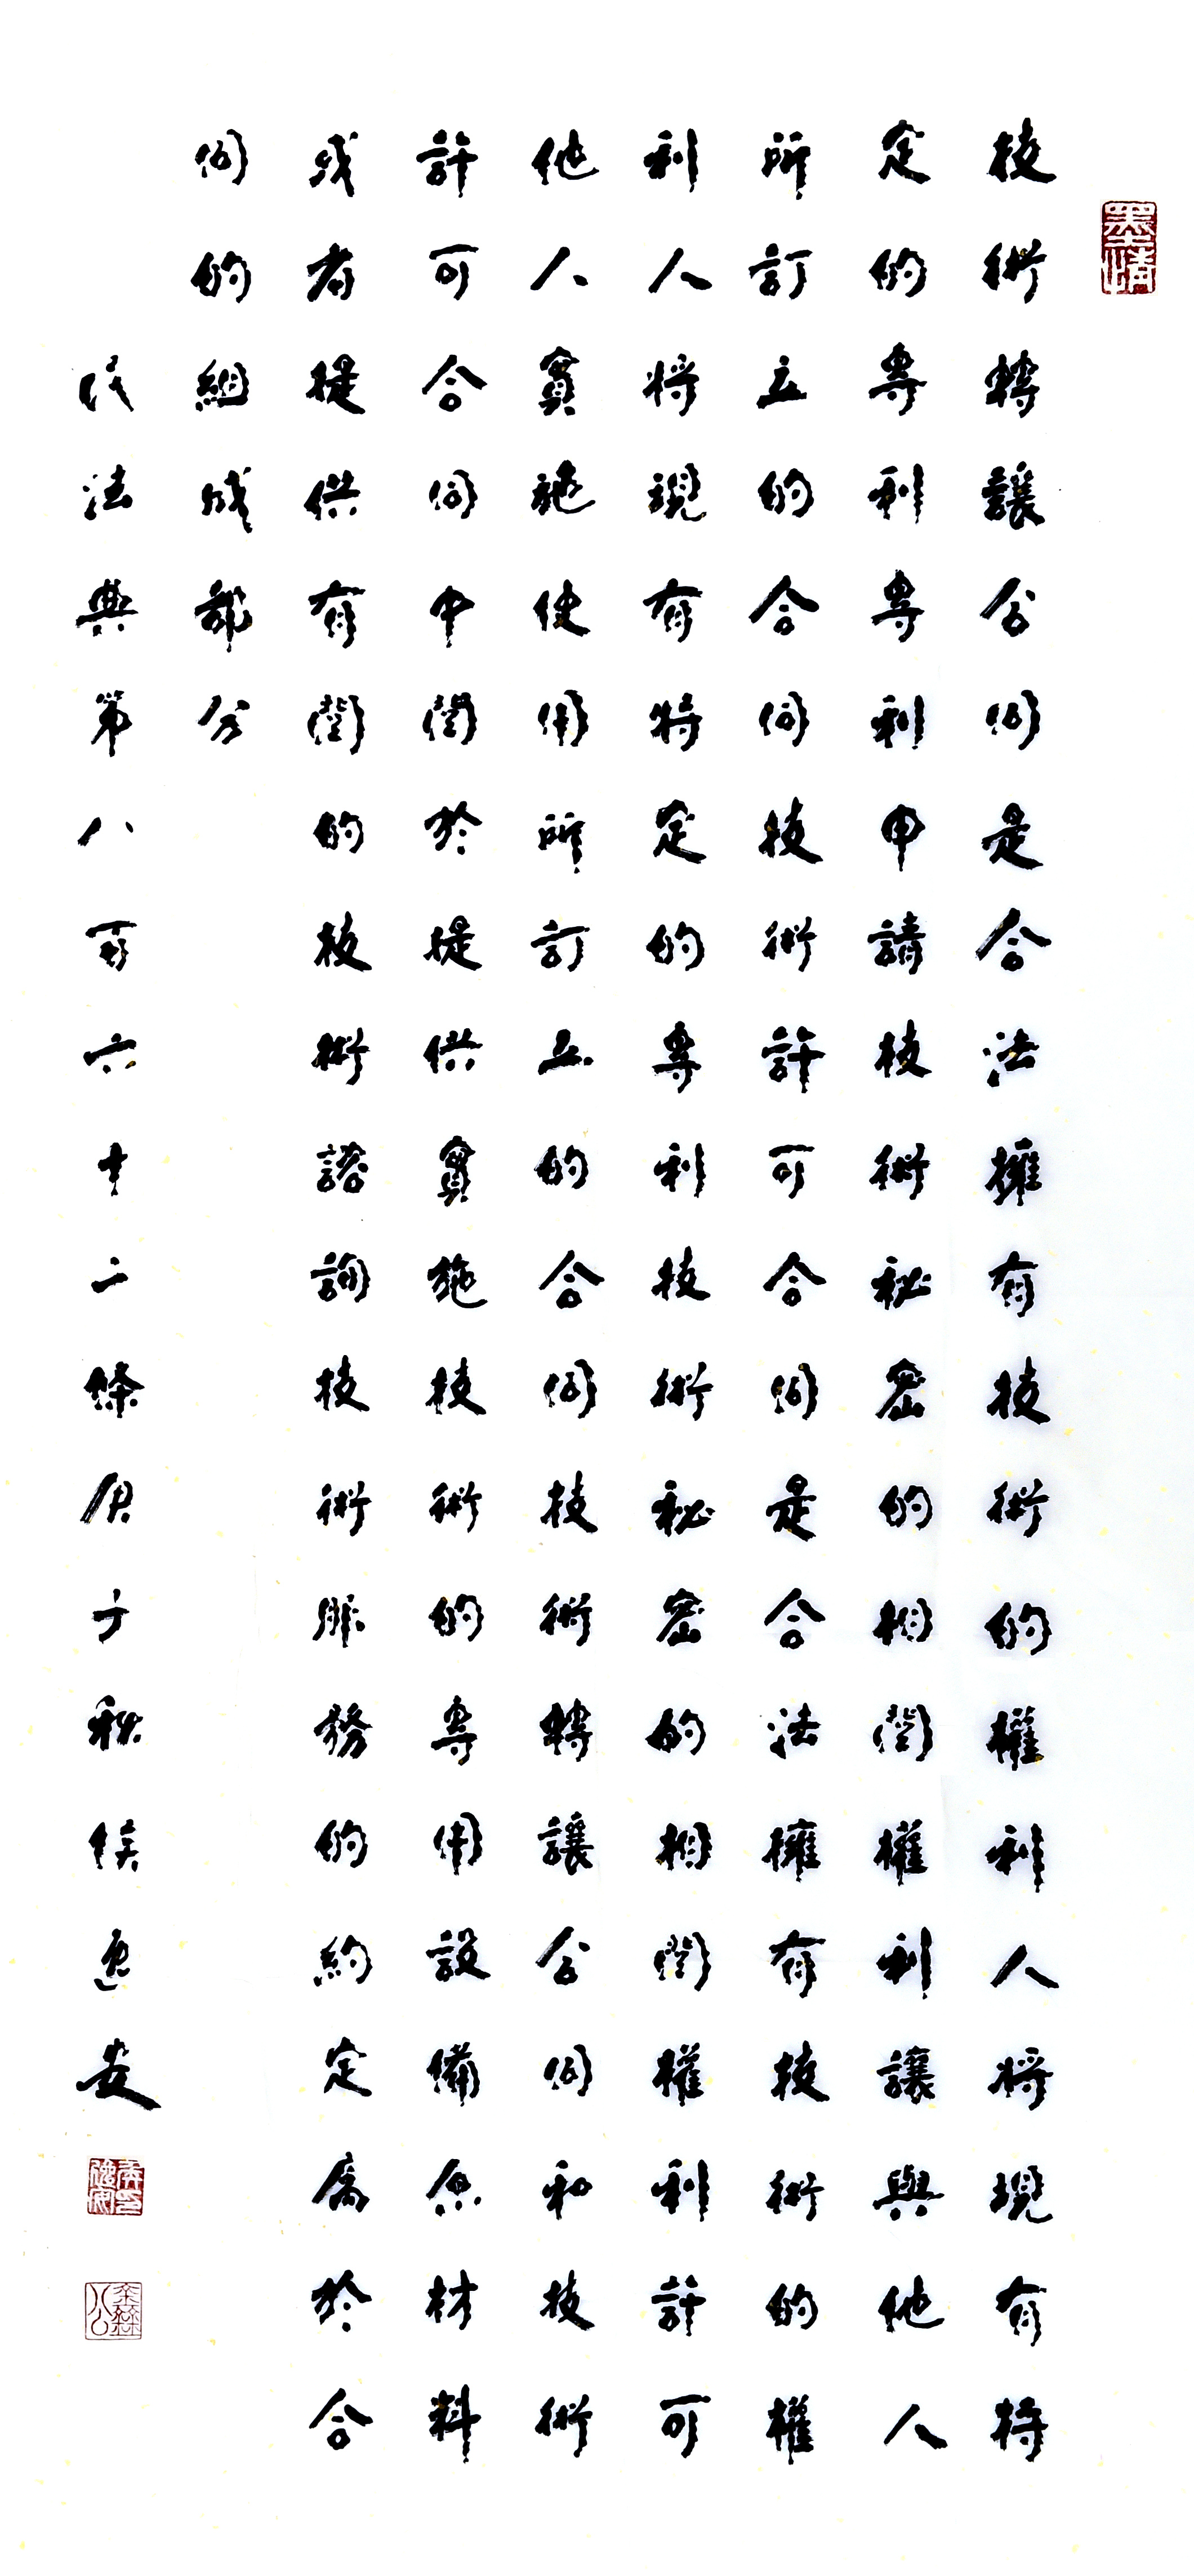 墨情
技術轉讓合同是合法擁有技術的權利人將現有特
定的專利專利申請技術秘密的相關權利讓與他人
所訂立的合同技術許可合同是合法擁有技術的權
利人將現有特定的專利技術秘密的相關權利許可
他人實施使用所訂立的合同技術轉讓合同和技術
許可合同中關於提供實施技術的專用設備原材料
或者提供有關的技術諮詢技術服務的約定屬於合
同的組成部分
民法典第八百六十二條庚子秋侯逸安